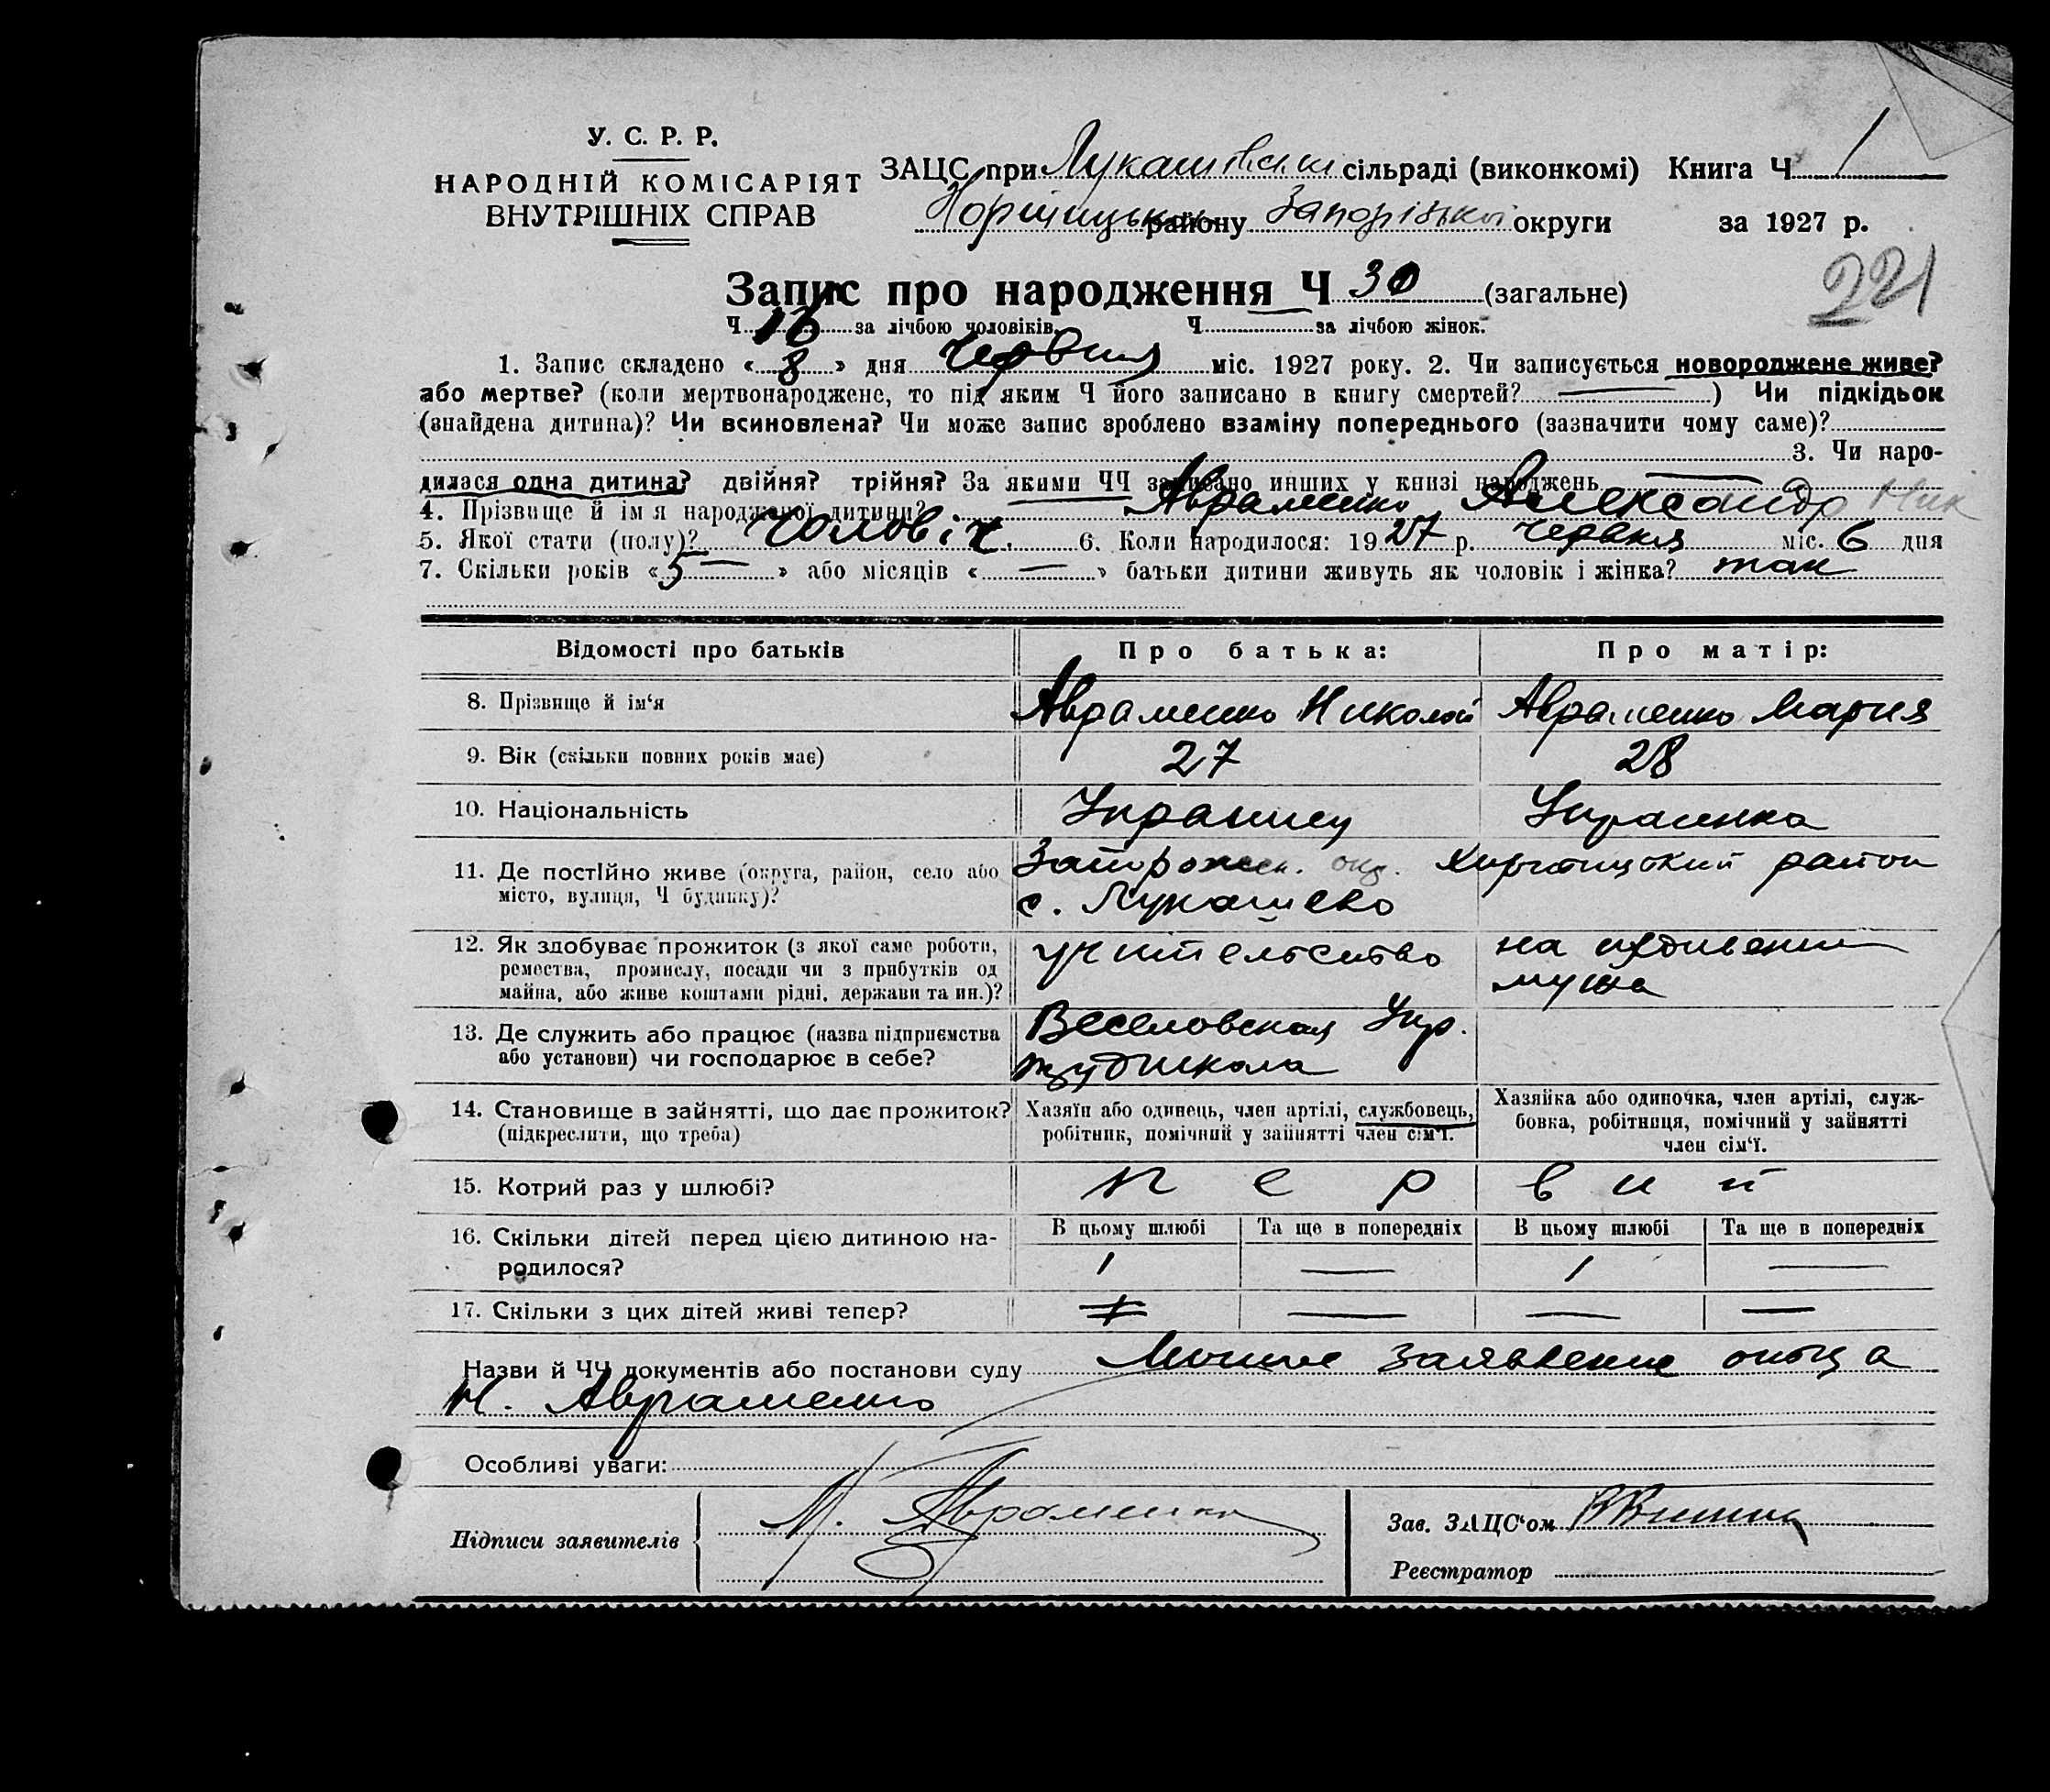 У. С. Р. Р.
НАРОДНІЙ КОМІСАРІЯТ
ВНУТРІШНІХ СПРАВ
ЗАЦС при Лукашівські сільраді (виконкомі) Книга Ч 1
району Запорізької округи за 1927 р.
221
Запис про народження Ч 30 (загальне)
Ч 16 за лічбою чоловіків. Ч за лічбою жінок.
1. Запис складено «8» дня Червня міс. 1927 року. 2. Чи записується новороджене живе?
або мертве? (коли мертвонароджене, то під яким Ч його записано в книгу смертей? —) Чи підкідьок
(знайдена дитина)? Чи всиновлена? Чи може запис зроблено взаміну попереднього (зазначити чому саме)?
3. Чи наро-
дилася одна дитина? двійня? трійня? За якими ЧЧ записано инших у книзі народжень —
4. Прізвище й ім'я народженої дитини? Авраменко Александр Ник
5. Якої стати (полу)? Чоловіч. 6. Коли народилося: 1927 р. червня міс. 6 дня
7. Скільки років «5 —» або місяців «—» батьки дитини живуть як чоловік і жінка? так
Відомості про батьків Про батька: Про матір:
8. Прізвище й ім'я Авраменко Николай Авраменко Мария
9. Вік (скільки повних років має) 27 28
10. Національність Украинец Украинка
11. Де постійно живе (округа, район, село або Запорожск. окр. Хортицкий район
місто, вулиця, Ч будинку)? с. Лукашево
12. Як здобуває прожиток (з якої саме роботи, учительство на иждивении
ремества, промислу, посади чи з прибутків од мужа
майна, або живе коштами рідні, держави та ин.)?
13. Де служить або працює (назва підприємства Веселовская Укр.
або установи) чи господарює в себе? трудшкола
14. Становище в зайнятті, що дає прожиток? Хазяїн або одинець, член артілі, службовець, Хазяйка або одиночка, член артілі, служ-
(підкреслити, що треба) робітник, помічний у зайнятті член сім'ї. бовка, робітниця, помічний у зайнятті
член сім'ї.
15. Котрий раз у шлюбі? первий
16. Скільки дітей перед цією дитиною на- В цьому шлюбі Та ще в попередніх В цьому шлюбі Та ще в попередніх
родилося? 1 — 1 —
17. Скільки з цих дітей живі тепер? — — —
Назви й ЧЧ документів або постанови суду Личное заявление отца
Н. Авраменко
Особливі уваги:
Підписи заявителів Н. Авраменко Зав. ЗАЦС'ом
Реєстратор